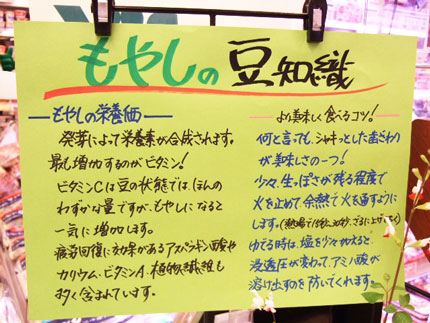 もやしの豆知織
もやしの栄養価
発芽によって栄養素が合成されます。
最も増加するのがビタミン！
ビタミンCは豆の状態では、ほんの
わずかな量ですが、もやしになると
一気に増加します。
疲労回復に効果があるアスパラギン酸や
カリウム、ビタミンA、植物繊維も
多く含まれています。
より美味しく食べるコツ！
何と言っても、シャキっとした歯ざわり
が美味しさの一つ！
少々、生っぽさが残る程度で
火を止めて余熱で火を通すように
します。
ゆでる時は、塩を少々加えると、
浸透圧が変わって、アミノ酸が
溶け出すのを防いでくれます。